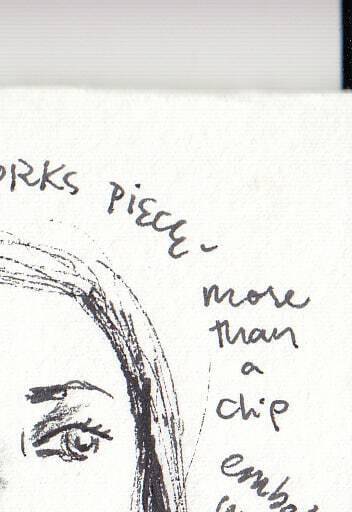 ORKS PIECE-
more
than
a
chip
embe